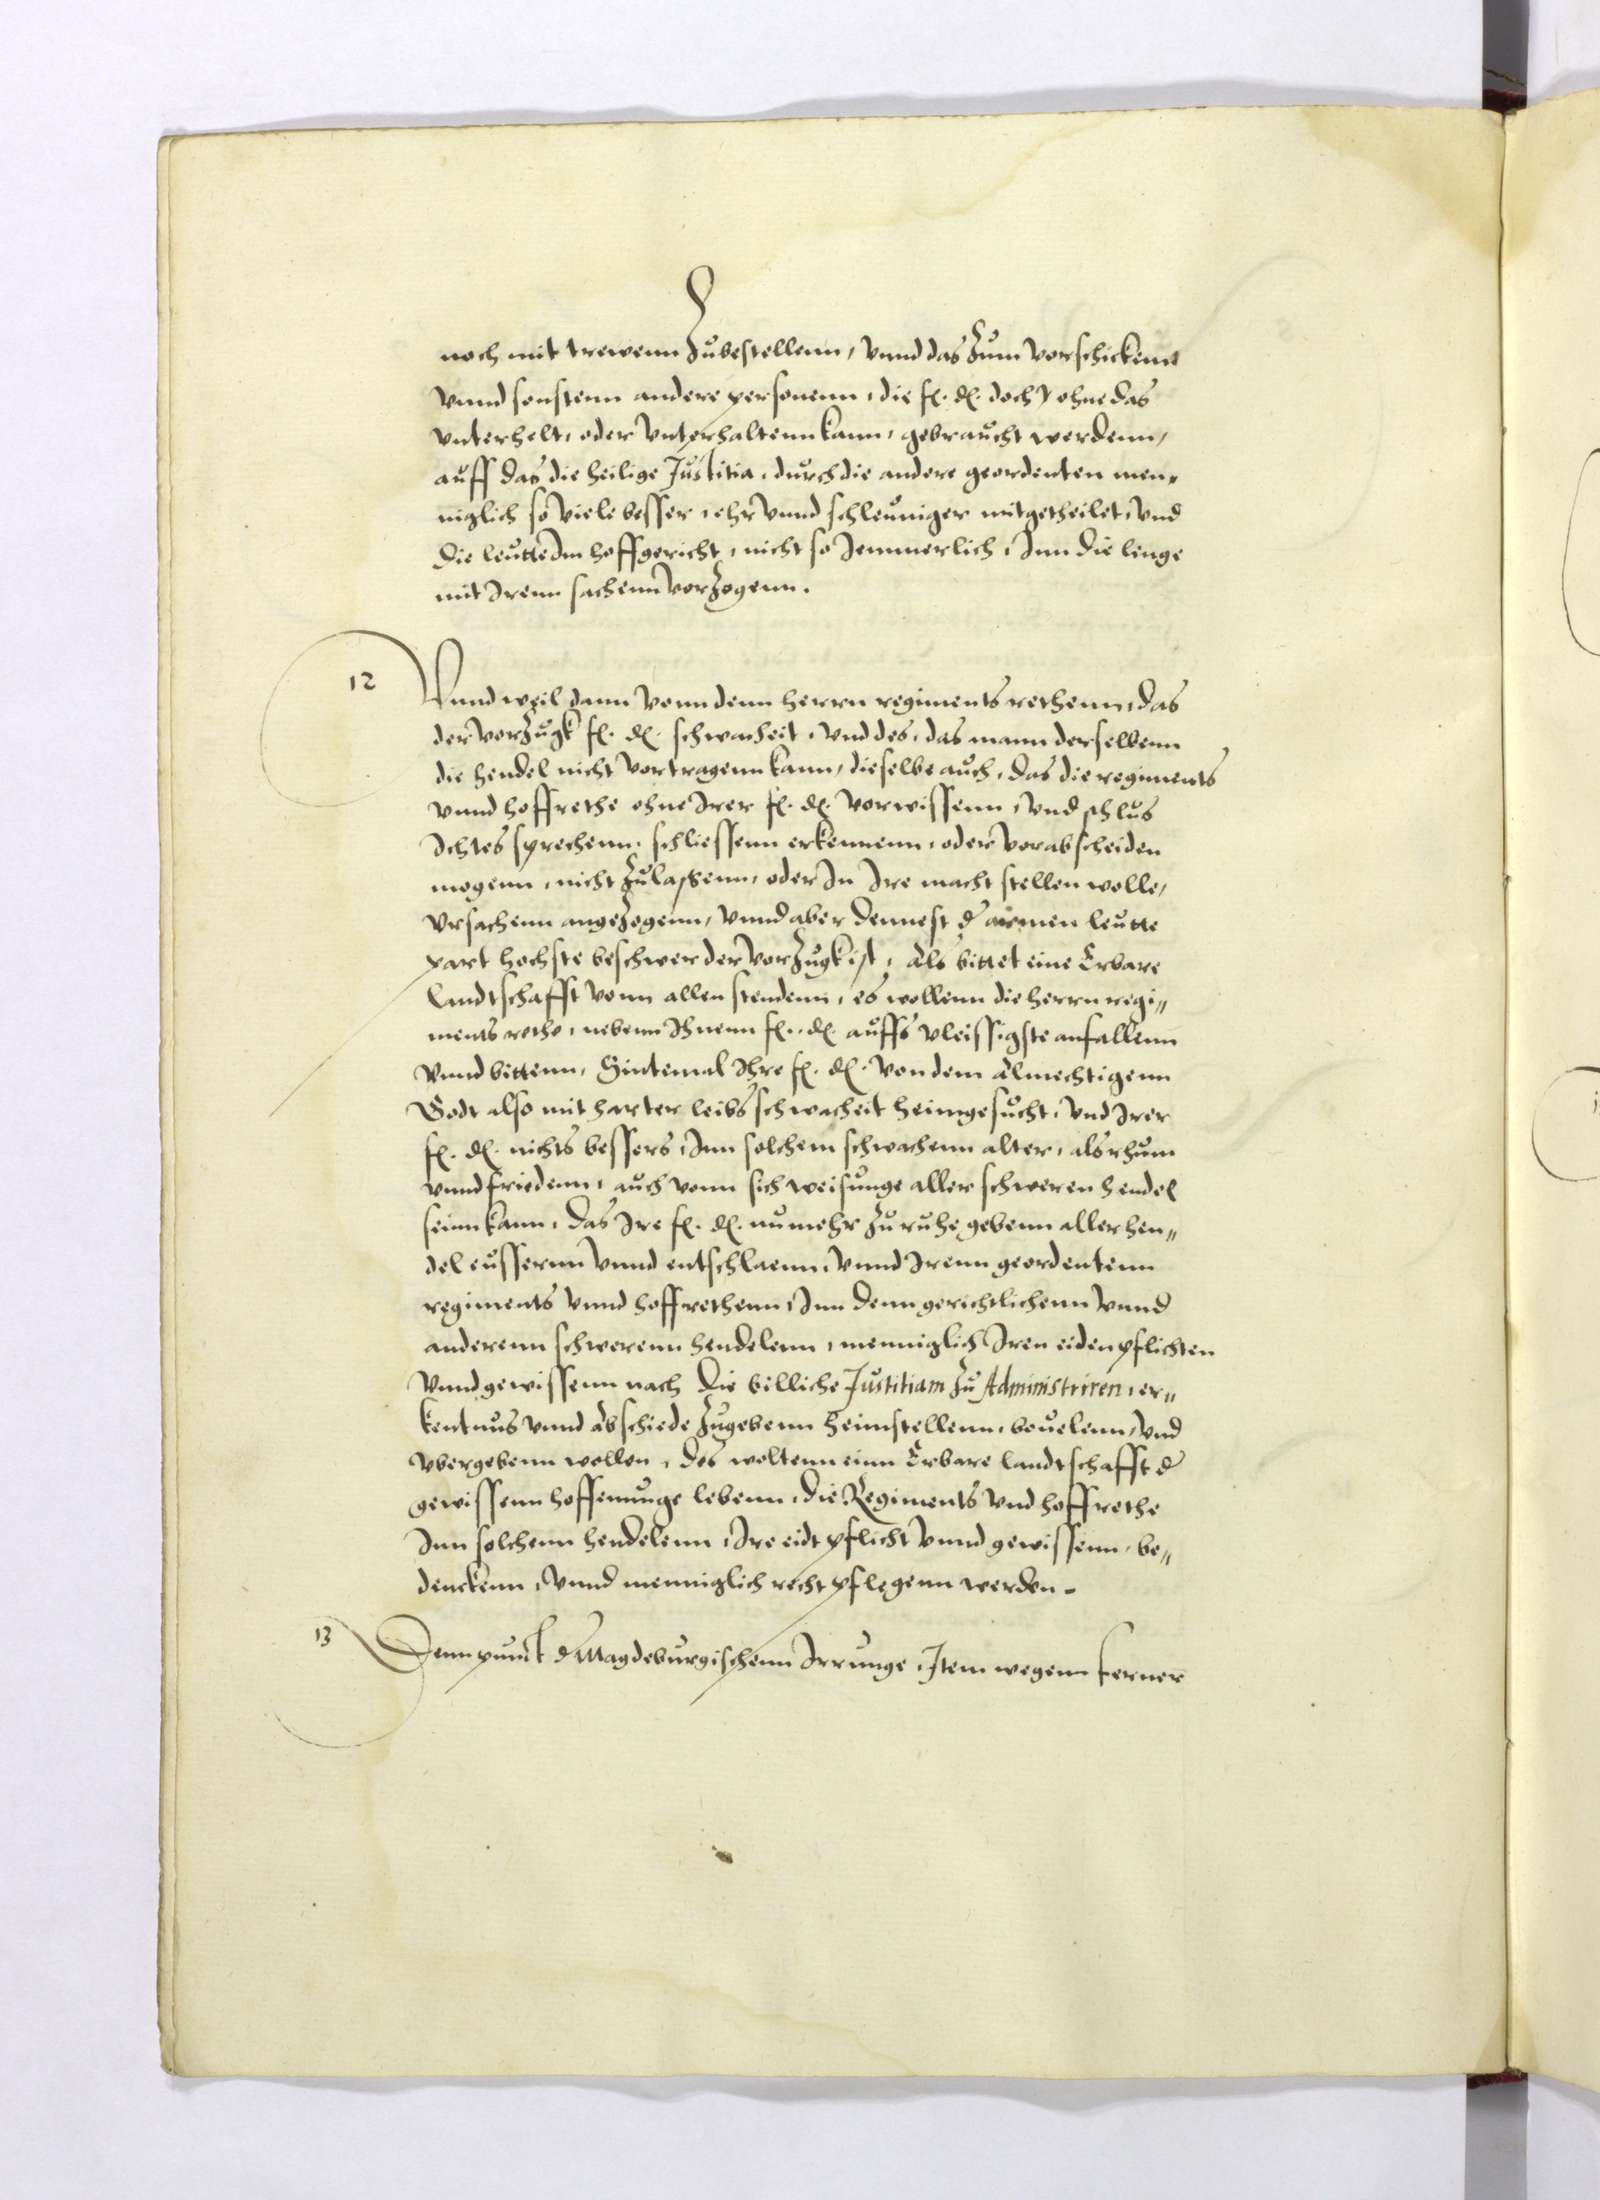 noch mit trewenn Zubestellenn, vnnd das Zum vorschickenn
vnnd sonstenn andere personenn, die f. d. doch ohne das
vnterhelt, oder vnterhaltenn kann, gebraucht werdenn,
auff das die heilige Justitia, durch die andere geordenten men=
niglich so viele besser, ehr vnnd schleuniger mitgetheilet, vnd
die leutte Im hoffgericht, nicht so Jemmerlich, Inn die lenge
mit Irenn sachenn vorZogenn.
12 Vnnd weil dann vonn denn herrn regiments rethenn, das
der vorZugk f. d. schwacheit, vnd des, das mann derselbenn
die hendel nicht vortragenn kann, dieselbe auch, das die regiments
vnnd hoffrethe ohne Irer f. d. vorwissenn, vnd schlus
Ichtes sprechenn, schliessenn erkennenn, oder vorabscheiden
mogenn, nicht Zulassenn, oder In Ire macht stellen wolle,
vrsachenn angeZogenn, vnnd aber dennest d armen leutte
part hochste beschwer der vorZugk ist, Als bittet eine Erbare
Landtschafft vonn allen stendenn, es wollenn die herrn regi=
ments rethe, nebenn Ihnenn f. d. auffs vleissigste anfallenn
vnnd bittenn, Sintemal Ihre f. d. von dem Almechtigenn
Godt also mit harter leibs schwacheit heimgesucht, vnd Irer
f. d. nichts bessers, Inn solchem schwachenn alter, als rhum
vnnd friedenn, auch vonn sich weisunge aller schweren hendel
seinn kann, das Ire f. d. nu mehr Zu ruhe gebenn aller hen=
del eussernn vnnd entschlaenn, vnnd Irenn geordentenn
regiments vnnd hoffrethenn, Inn denn gerichtlichenn vnnd
anderenn schwerenn hendelenn, menniglich Iren eiden pflichten
vnnd gewissenn nach die billiche Justitiam Zu Administriren, er=
kentnus vnnd Abschiede Zugebenn heimstellenn, beuelenn, vnd
vbergebenn wollen, des woltenn einn Erbare landtschafft d
gewissenn hoffenunge lebenn, die Regiments vnd hoffrethe
Inn solchenn hendelenn, Ire eidt pflicht vnnd gewissenn, be=
denckenn, vnnd menniglich recht pflegenn werden.
13 Denn punct d Magdeburgischenn Irrunge, Item wegenn ferner